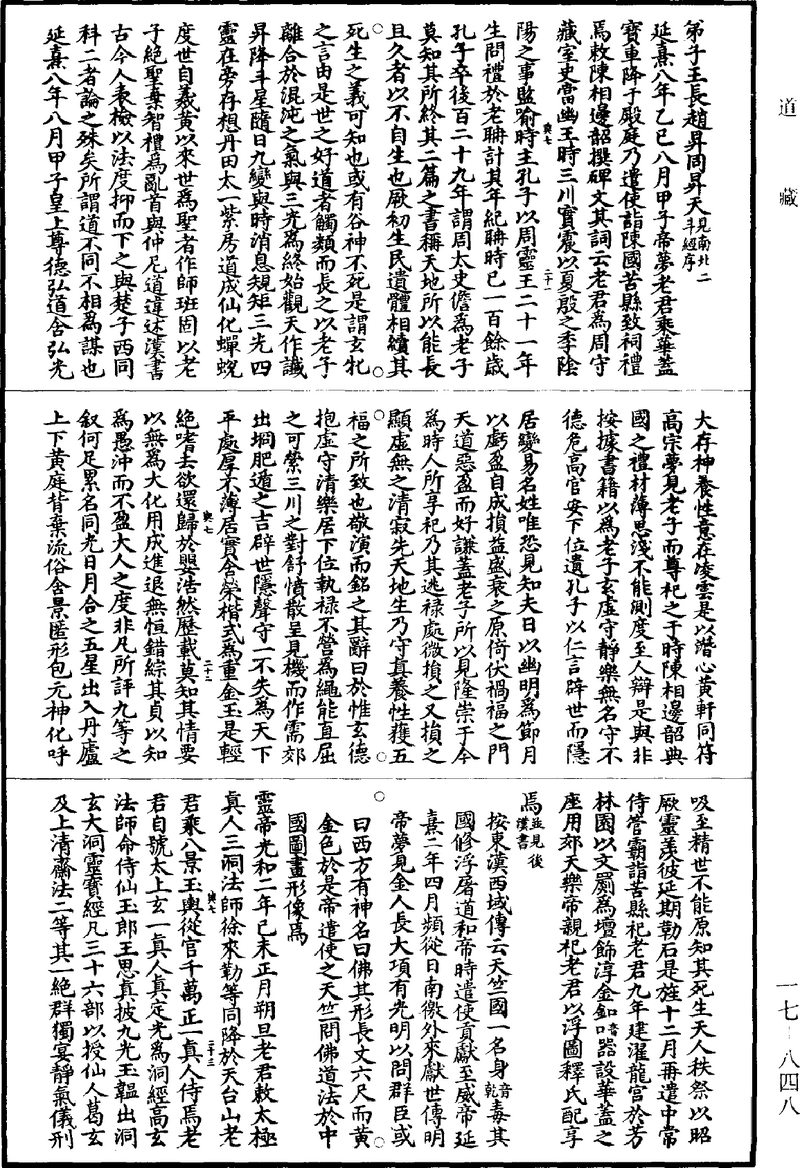 道藏
弟子王長趙昇同昇天見南北二斗經序
延熹八年乙巳八月甲子帝夢老君乘華蓋
寶車降于殿庭乃遣使詣陳國苦縣致祠禮
焉敕陳相邊韶撰碑文其詞云老君為周守
藏室史當幽王時三川實震以夏殷之季陰
陽之事鑒喻時主孔子以周靈王二十一年
生問禮於老聃計其年紀聃時已一百餘歲
孔子卒後百二十九年謂周太史儋為老子
莫知其所終其二篇之書稱天地所以能長
且久者以不自生也厥初生民遺體相續其
死生之義可知也或有谷神不死是謂玄牝
之言由是世之好道者觸類而長之以老子
離合於混沌之氣與三光為終始觀天作讖
昇降斗星隨日九變與時消息規矩三光四
靈在旁存想丹田太一紫房道成仙化蟬蛻
度世自羲黃以來世為聖者作師班固以老
子絕聖棄智禮為亂首與仲尼道違述漢書
古今人表檢以法度抑而下之與楚子西同
科二者論之殊矣所謂道不同不相為謀也
延熹八年八月甲子皇上尊德弘道含弘光
大存神養性意在凌雲是以潛心黃軒同符
高宗夢見老子而尊祀之于時陳相邊韶典
國之禮材薄思淺不能測度至人辯是與非
按據書籍以為老子玄虛守靜樂無名守不
德危高官安下位遺孔子以仁言辟世而隱
居變易名姓唯恐見知夫日以幽明為節月
以虧盈自成損益盛衰之原倚伏禍福之門
天道惡盈而好謙蓋老子所以見隆崇于今
為時人所享祀乃其逃祿處微損之又損之
顯虛無之清寂先天地生乃守真養性獲五
福之所致也敬演而銘之其辭曰於惟玄德
抱虛守清樂居下位執祿不營為繩能直屈
之可縈三川之對舒憤散呈見機而作需郊
出坰肥遁之吉辟世隱聲守一不失為天下
平處厚不薄居實舍榮楷式為重金玉是輕
絕嗜去欲還歸於嬰浩然歷載莫知其情要
以無為大化用成進退無恒錯綜其貞以知
為愚沖而不盈大人之度非凡所評九等之
敘何足累名同光日月合之五星出入丹廬
上下黃庭背棄流俗舍景匿形包元神化呼
吸至精世不能原知其死生天人秩祭以昭
厥靈羨彼延期勒石是旌十二月再遣中常
侍管霸詣苦縣祀老君九年建濯龍宮於芳
林園以文罽為壇飾淳金釦音口器設華蓋之
座用郊天樂帝親祀老君以浮圖釋氏配享
焉並見後漢書
按東漢西域傳云天竺國一名身音乾毒其
國修浮屠道和帝時遣使貢獻至威帝延
熹二年四月頻從日南徼外來獻世傳明
帝夢見金人長大項有光明以問群臣或
曰西方有神名曰佛其形長丈六尺而黃
金色於是帝遣使之天竺問佛道法於中
國圖畫形像焉
靈帝光和二年己未正月朔旦老君敕太極
真人三洞法師徐來勒等同降於天台山老
君乘八景玉輿從官千萬正一真人侍焉老
君自號太上玄一真人真定光為洞經高玄
法師命侍仙玉郎王思真披九光玉韞出洞
玄大洞靈寶經凡三十六部以授仙人葛玄
及上清齋法二等其一絕群獨宴靜氣儀刑
一七-八四八